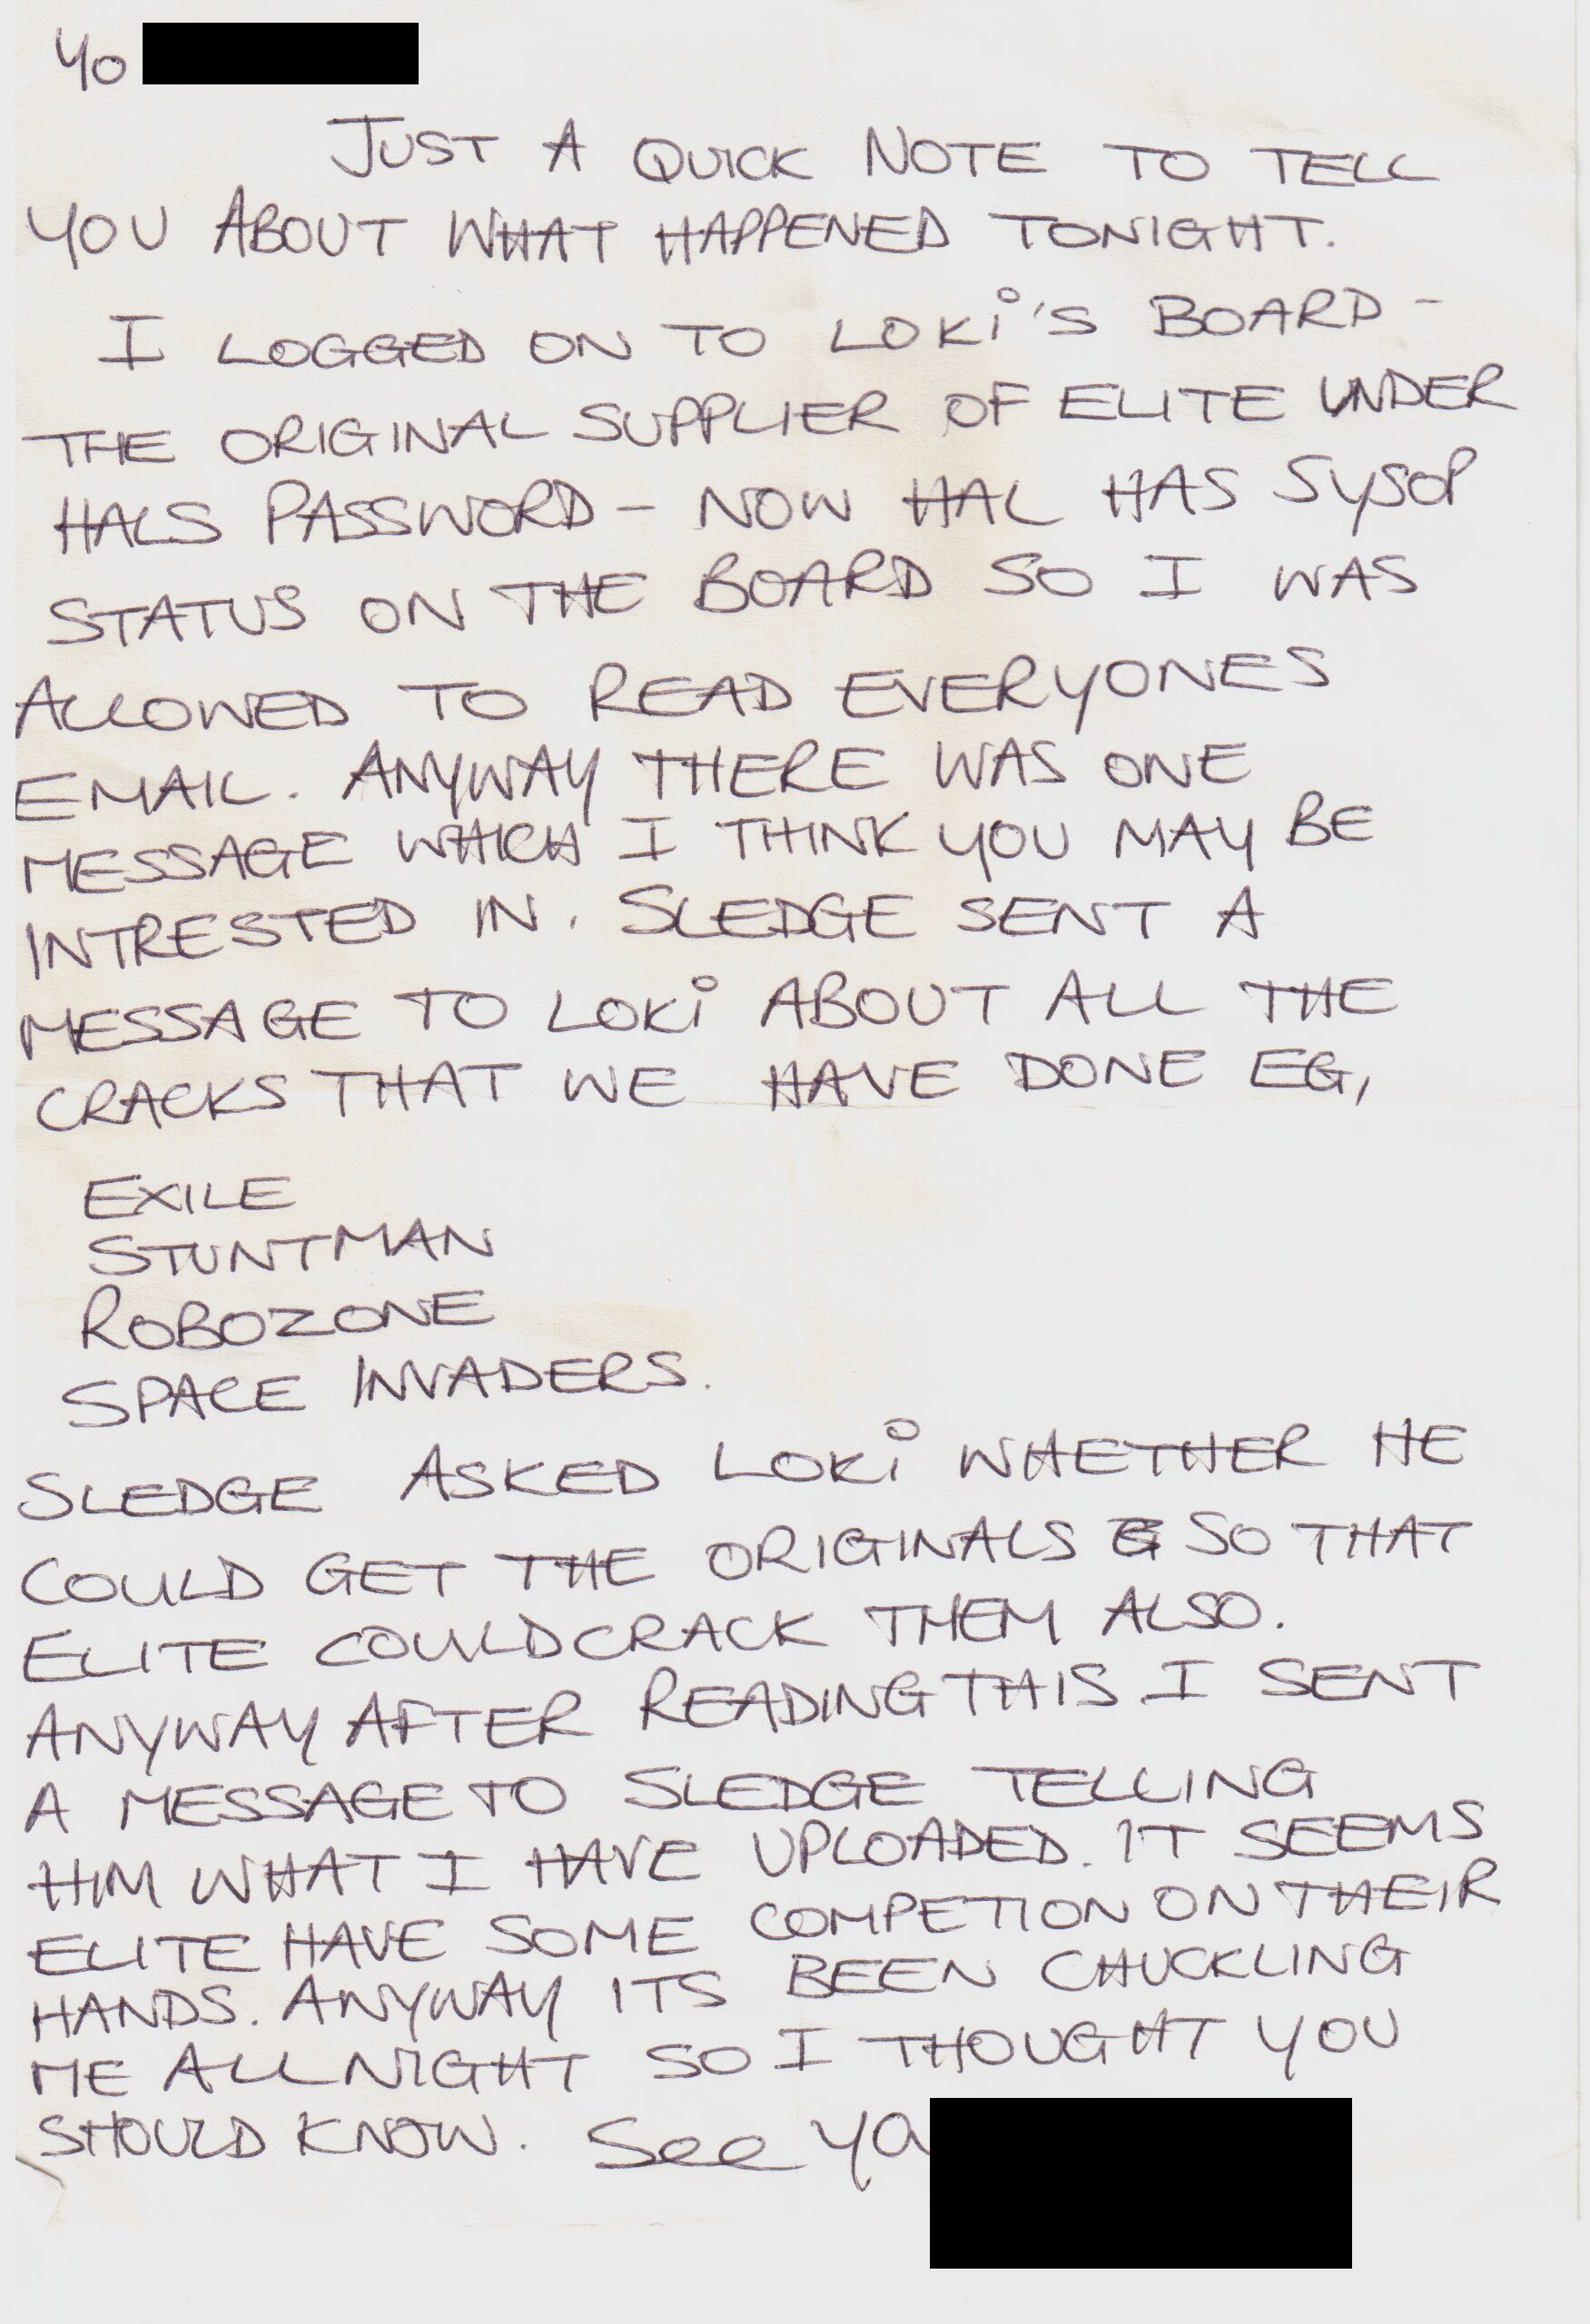 Yo
JUST A QUICK NOTE TO TELL
YOU ABOUT WHAT HAPPENED TONIGHT.
I LOGGED ON TO LOKi'S BOARD -
THE ORIGINAL SUPPLIER OF ELITE UNDER
HALS PASSWORD - NOW HAL HAS SYSOP
STATUS ON THE BOARD SO I WAS
ALLOWED TO READ EVERYONES
EMAIL. ANYWAY THERE WAS ONE
MESSAGE WHICH I THINK YOU MAY BE
INTRESTED IN. SLEDGE SENT A
MESSAGE TO LOKi ABOUT ALL THE
CRACKS THAT WE HAVE DONE EG,
EXILE
STUNTMAN
ROBOZONE
SPACE INVADERS.
SLEDGE ASKED LOKi WHETHER HE
COULD GET THE ORIGINALS SO THAT
ELITE COULD CRACK THEM ALSO.
ANYWAY AFTER READING THIS I SENT
A MESSAGE TO SLEDGE TELLING
HIM WHAT I HAVE UPLOADED. IT SEEMS
ELITE HAVE SOME COMPETION ON THEIR
HANDS. ANYWAY ITS BEEN CHUCKLING
ME ALL NIGHT SO I THOUGHT YOU
SHOULD KNOW. See ya